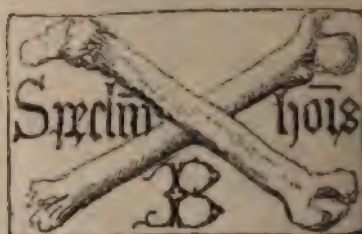 Speclm̄ hoīs
B